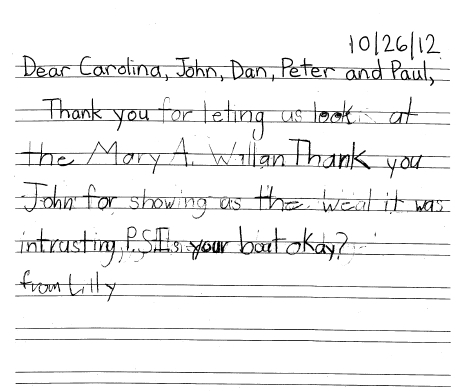 10/26/12
Dear Carolina, John, Dan, Peter and Paul,
Thank you for leting us look at
the Mary A. Whllan Thank you
John for showing us the weal it was
intrusting, P.S Is your boat okay?
from Lilly